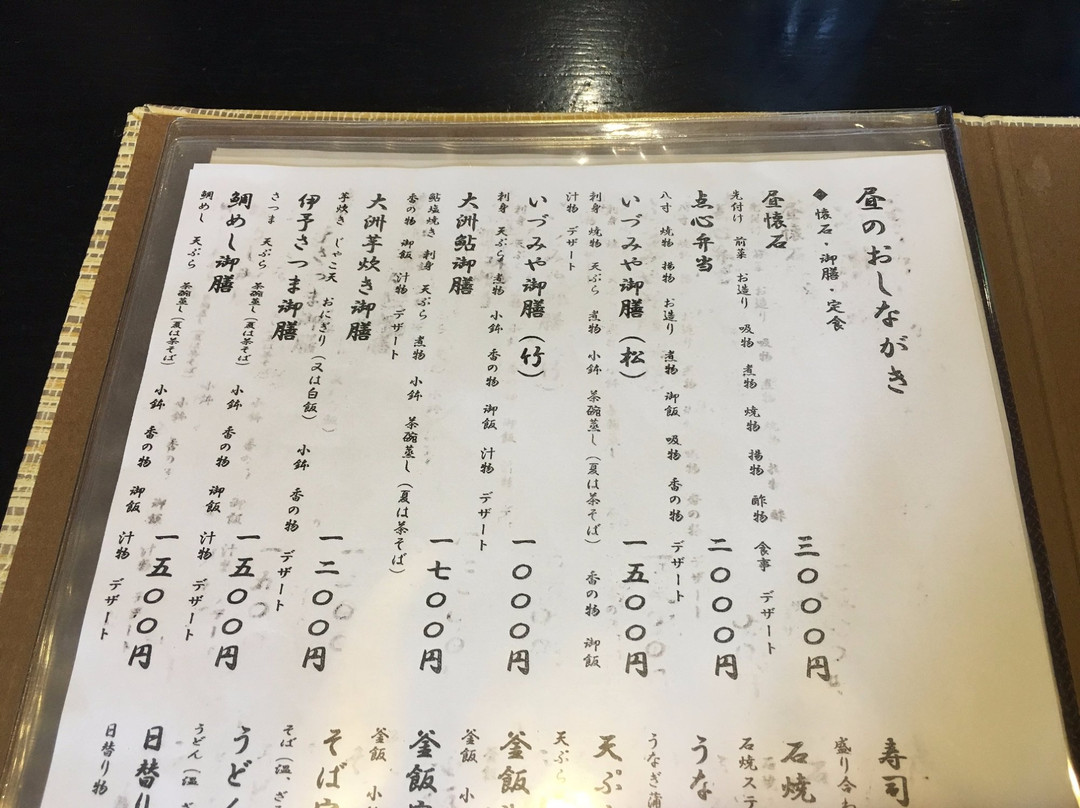 昼のおしながき
◆ 懐石・御膳・定食
昼懐石 三〇〇〇円
先付け 前菜 お造り 吸物 煮物 焼物 揚物 酢物 食事 デザート
点心弁当 二〇〇〇円
八寸 焼物 揚物 お造り 煮物 御飯 吸物 香の物 デザート
いづみや御膳(松) 一五〇〇円
刺身 焼物 天ぷら 煮物 小鉢 茶碗蒸し(夏は茶そば) 香の物 御飯
汁物 デザート
いづみや御膳(竹) 一〇〇〇円
刺身 天ぷら 煮物 小鉢 香の物 御飯 汁物 デザート
大洲鮎御膳 一七〇〇円
鮎塩焼き 刺身 天ぷら 煮物 小鉢 茶碗蒸し(夏は茶そば)
香の物 御飯 汁物 デザート
大洲芋炊き御膳 一二〇〇円
芋炊き じゃこ天 おにぎり(又は白飯) 小鉢 香の物 デザート
伊予さつま御膳 一五〇〇円
さつま 天ぷら 茶碗蒸し(夏は茶そば) 小鉢 香の物 御飯 汁物 デザート
鯛めし御膳 一五〇〇円
鯛めし 天ぷら 茶碗蒸し(夏は茶そば) 小鉢 香の物 御飯 汁物 デザート
寿司
盛り合わ
石焼
石焼ステ
うな
うなぎ蒲
天ぷ
天ぷら
釜飯
釜飯 小
釜飯
釜飯 小
そば
そば(温、ざ
うど
うどん(温
日替
日替り物